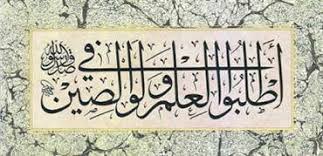 أطلبوا العلم ولو في الصين
صدق رسول الله